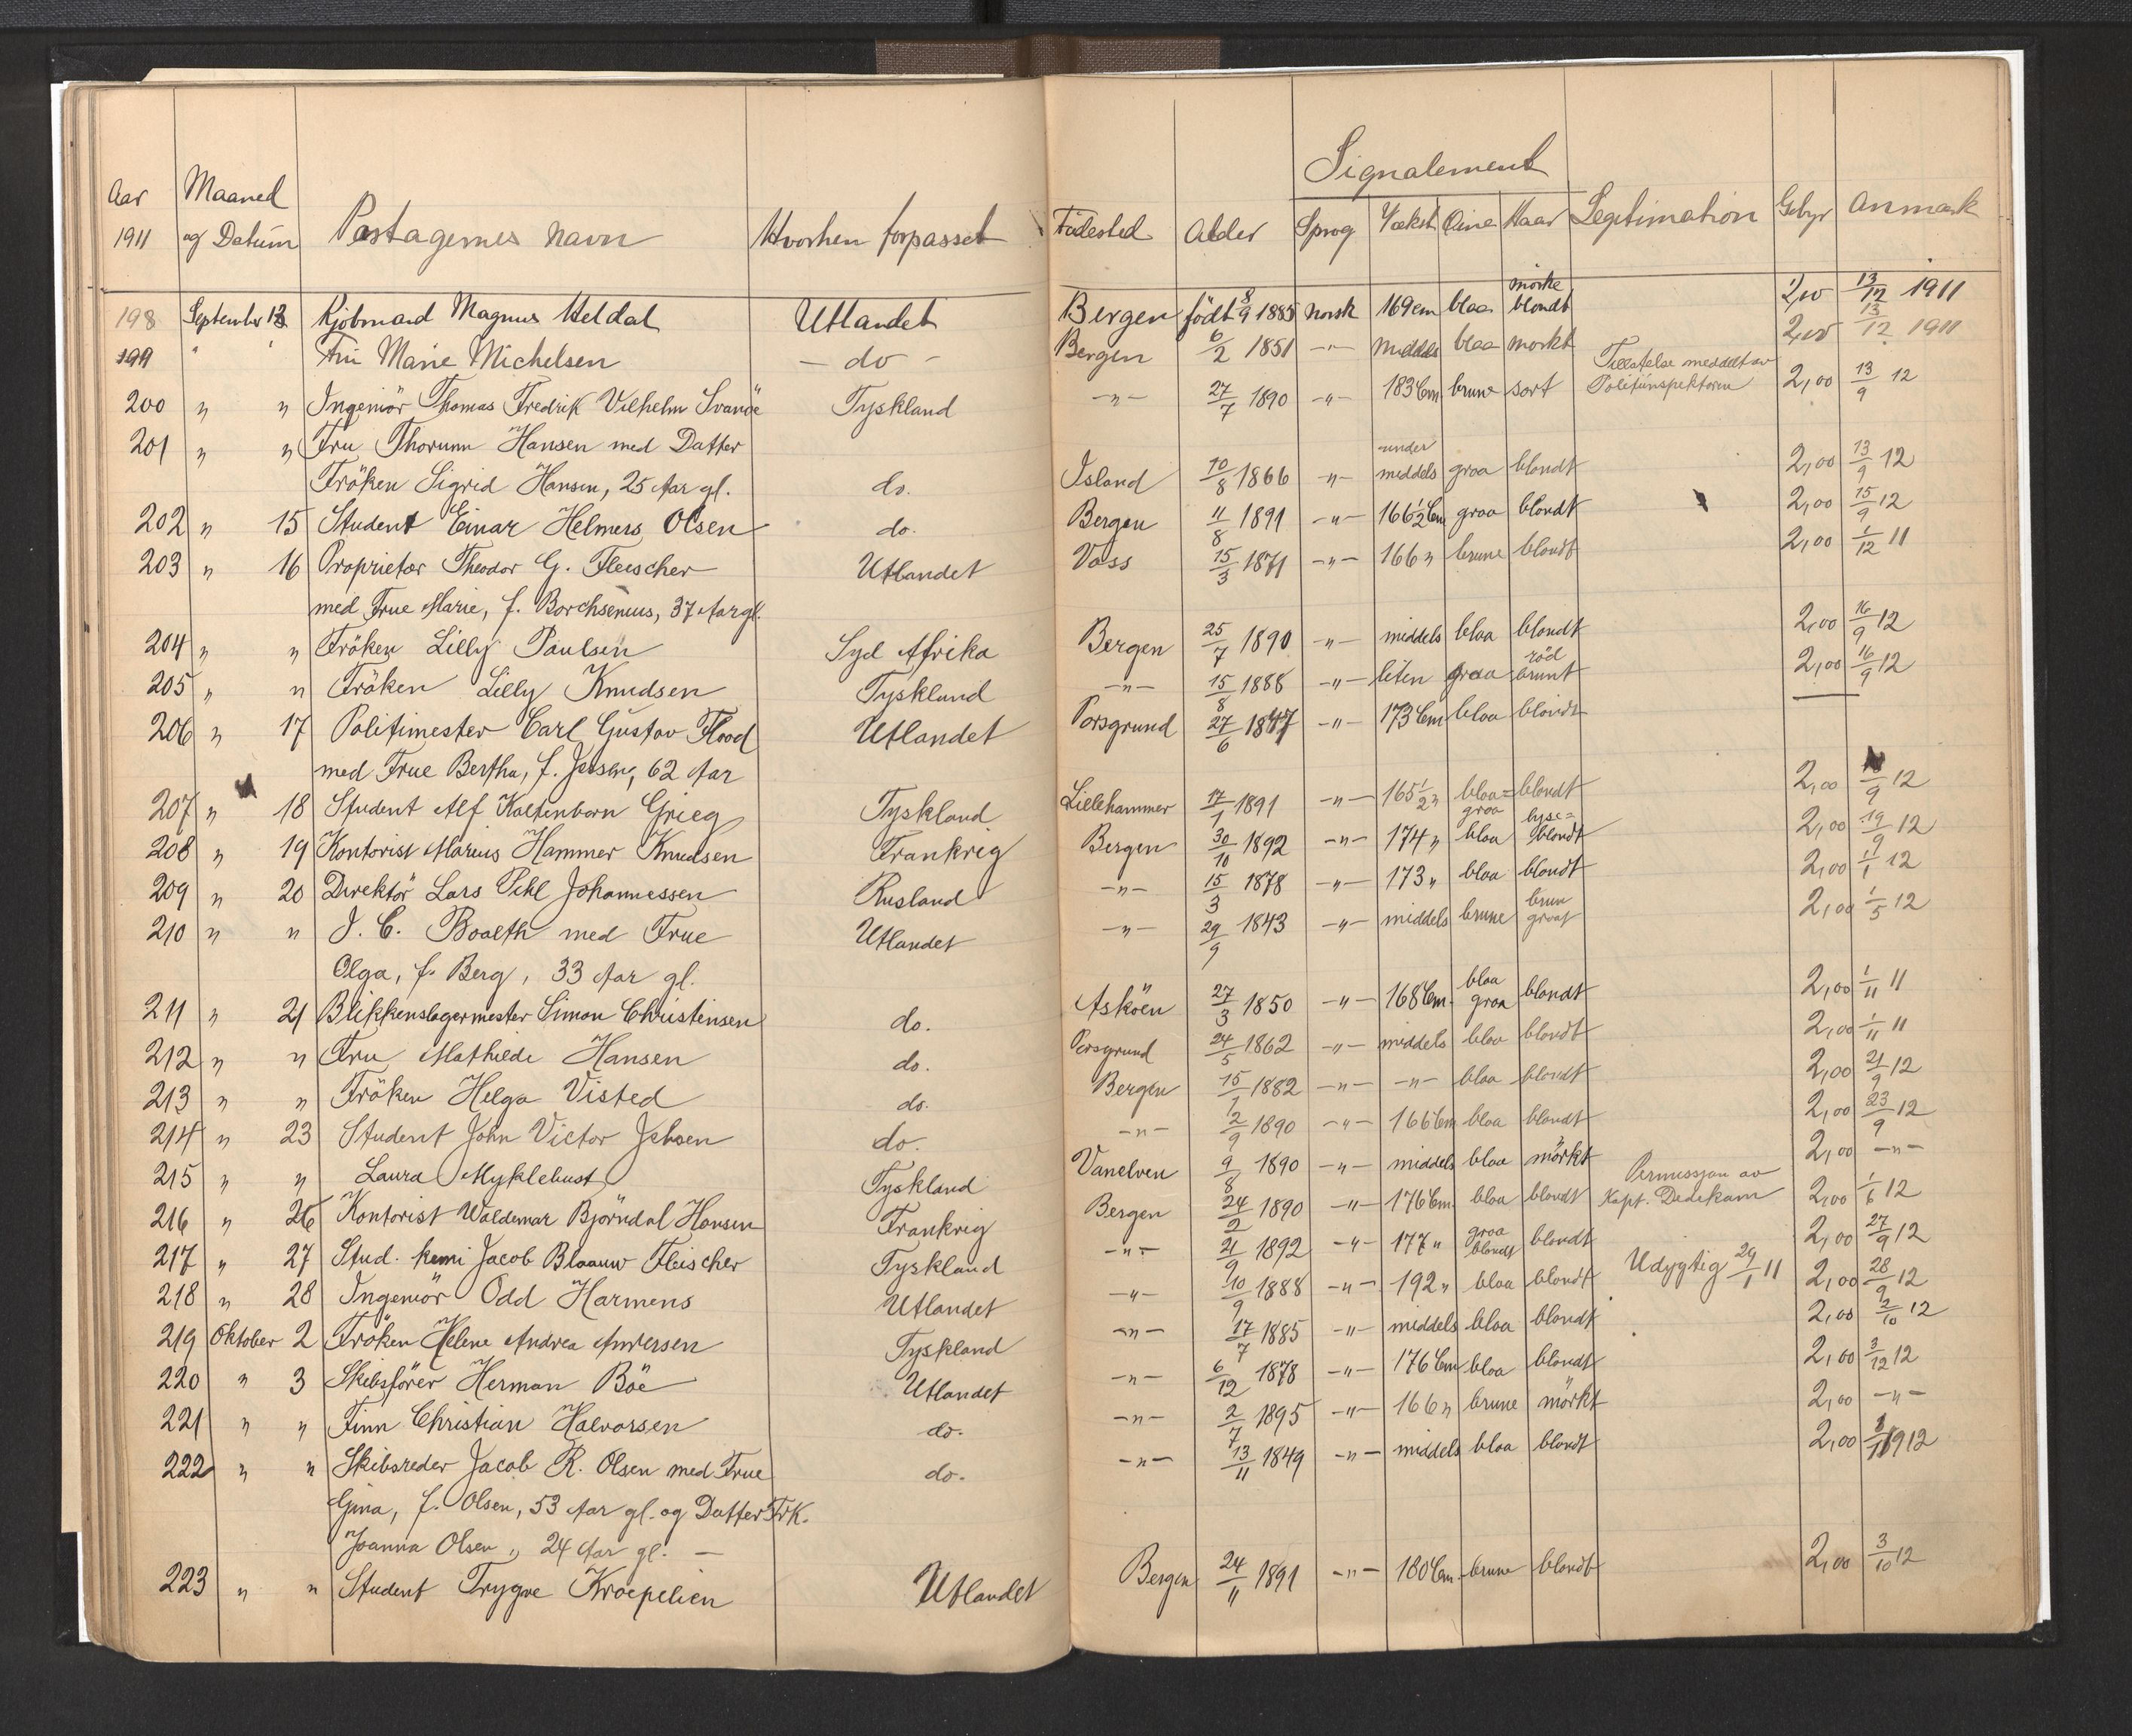 Aar Maaned
1911 og Datum Pastagernes navn Hvorhen forpasset
198 September 13 Kjöbmand Magnus Heldal Utlandet
199 " " Fru Marie Michelsen — do —
200 " " Ingeniör Thomas Fredrik Vilhelm Svanöe Tyskland
201 " " Fru Thorunn Hansen med Datter
Fröken Sigrid Hansen, 25 Aar gl. do.
202 " 15 Student Einar Helmers Olsen do.
203 " 16 Proprietær Theodor G. Fleischer Utlandet
med Frue Marie, f. Borchsenius, 37 Aar gl.
204 " " Fröken Lilly Paulsen Syd Afrika
205 " " Fröken Lilly Knudsen Tyskland
206 " 17 Politimester Carl Gustav Flood Utlandet
med Frue Bertha, f. Jensen, 62 Aar
207 " 18 Student Alf Kaltenborn Grieg Tyskland
208 " 19 Kontorist Marius Hammer Knudsen Frankrig
209 " 20 Direktör Lars Pihl Johannessen Rusland
210 " " J. C. Boalth med Frue Utlandet
Olga, f. Berg, 33 Aar gl.
211 " 21 Blikkenslagermester Simon Christensen do.
212 " " Fru Mathilde Hansen do.
213 " " Fröken Helga Visted do.
214 " 23 Student John Victor Jebsen do.
215 " " Laura Myklebust Tyskland
216 " 26 Kontorist Waldemar Björndal Hansen Frankrig
217 " 27 Stud. kemi Jacob Blaauw Fleischer Tyskland
218 " 28 Ingeniör Odd Harmens Utlandet
219 Oktober 2 Fröken Helene Andrea Andersen Tyskland
220 " 3 Skibsförer Herman Böe Utlandet
221 " " Finn Christian Halvorsen do.
222 " " Skibsreder Jacob R. Olsen med Frue do.
Gina, f. Olsen, 53 Aar gl. og Datter Frk.
Joanna Olsen, 24 Aar gl. —
223 " " Student Trygve Kroepelien Utlandet
Signalement
Födested Alder Sprog Vækst Öine Haar Legitimation Gebyr Anmerk
mörke
Bergen födt 8/9 1885 norsk 169 cm blaa blondt 2,00 13/12 1911
Bergen 6/2 1851 -"- middels blaa mörkt 2,00 13/12 1911
Tillatelse meddelt av
-"- 27/7 1890 -"- 183 Cm brune sort Politiinspektoren 2,00 13/9 12
under
Island 10/8 1866 -"- middels graa blondt 2,00 13/9 12
Bergen 11/8 1891 -"- 166 1/2 Cm graa blondt 2,00 15/9 12
Voss 15/3 1871 -"- 166 " brune blondt 2,00 1/12 11
Bergen 25/7 1890 -"- middels blaa blondt 2,00 16/9 12
röd
-"- 15/8 1888 -"- liten graa brunt 2,00 16/9 12
Porsgrund 27/6 1847 -"- 173 Cm blaa blondt —
Lillehammer 17/1 1891 -"- 165 1/2 " blaa= blondt 2,00 18/9 12
graa lyse=
Bergen 30/10 1892 -"- 174 " blaa blondt 2,00 19/9 12
-"- 15/3 1878 -"- 173 " blaa blondt 2,00 1/1 12
brun
-"- 29/9 1843 -"- middels brune graat 2,00 1/5 12
blaa
Asköen 27/3 1850 -"- 168 Cm. graa blondt 2,00 1/11 11
Porsgrund 24/5 1862 -"- middels blaa blondt 2,00 1/11 11
Bergen 15/1 1882 -"- -"- blaa blondt 2,00 21/9 12
-"- 2/9 1890 -"- 166 Cm blaa blondt 2,00 23/9 12
Vanelven 9/8 1890 -"- middels blaa mörkt 2,00 -"-
Permissjon av
Bergen 24/2 1890 -"- 176 Cm blaa blondt Kapt. Dedekam 2,00 1/6 12
graa
-"- 21/9 1892 -"- 177 " blondt blondt 2,00 27/9 12
-"- 10/9 1888 -"- 192 " blaa blondt Udygtig 29/1 11 2,00 28/9 12
-"- 17/7 1885 -"- middels blaa blondt 2,00 2/10 12
-"- 6/12 1878 -"- 176 Cm blaa blondt 2,00 3/12 12
-"- 2/7 1895 -"- 166 " brune mörkt 2,00 -"-
-"- 13/11 1849 -"- middels blaa blondt 2,00 1912
Bergen 24/11 1891 -"- 180 Cm. brune blondt 2,00 3/10 12